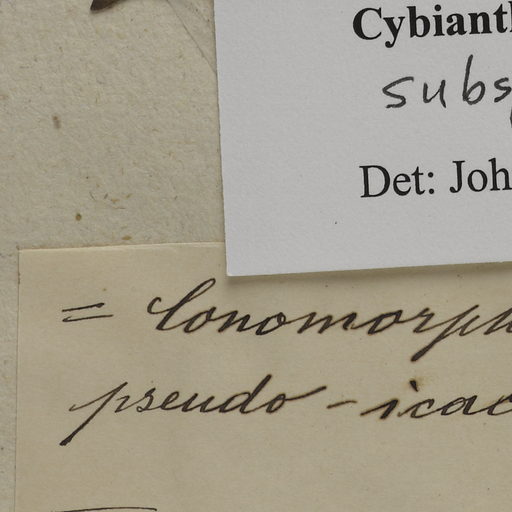 Cybianth
subs
Det: Joh
= Conomorph
pseudo-icac